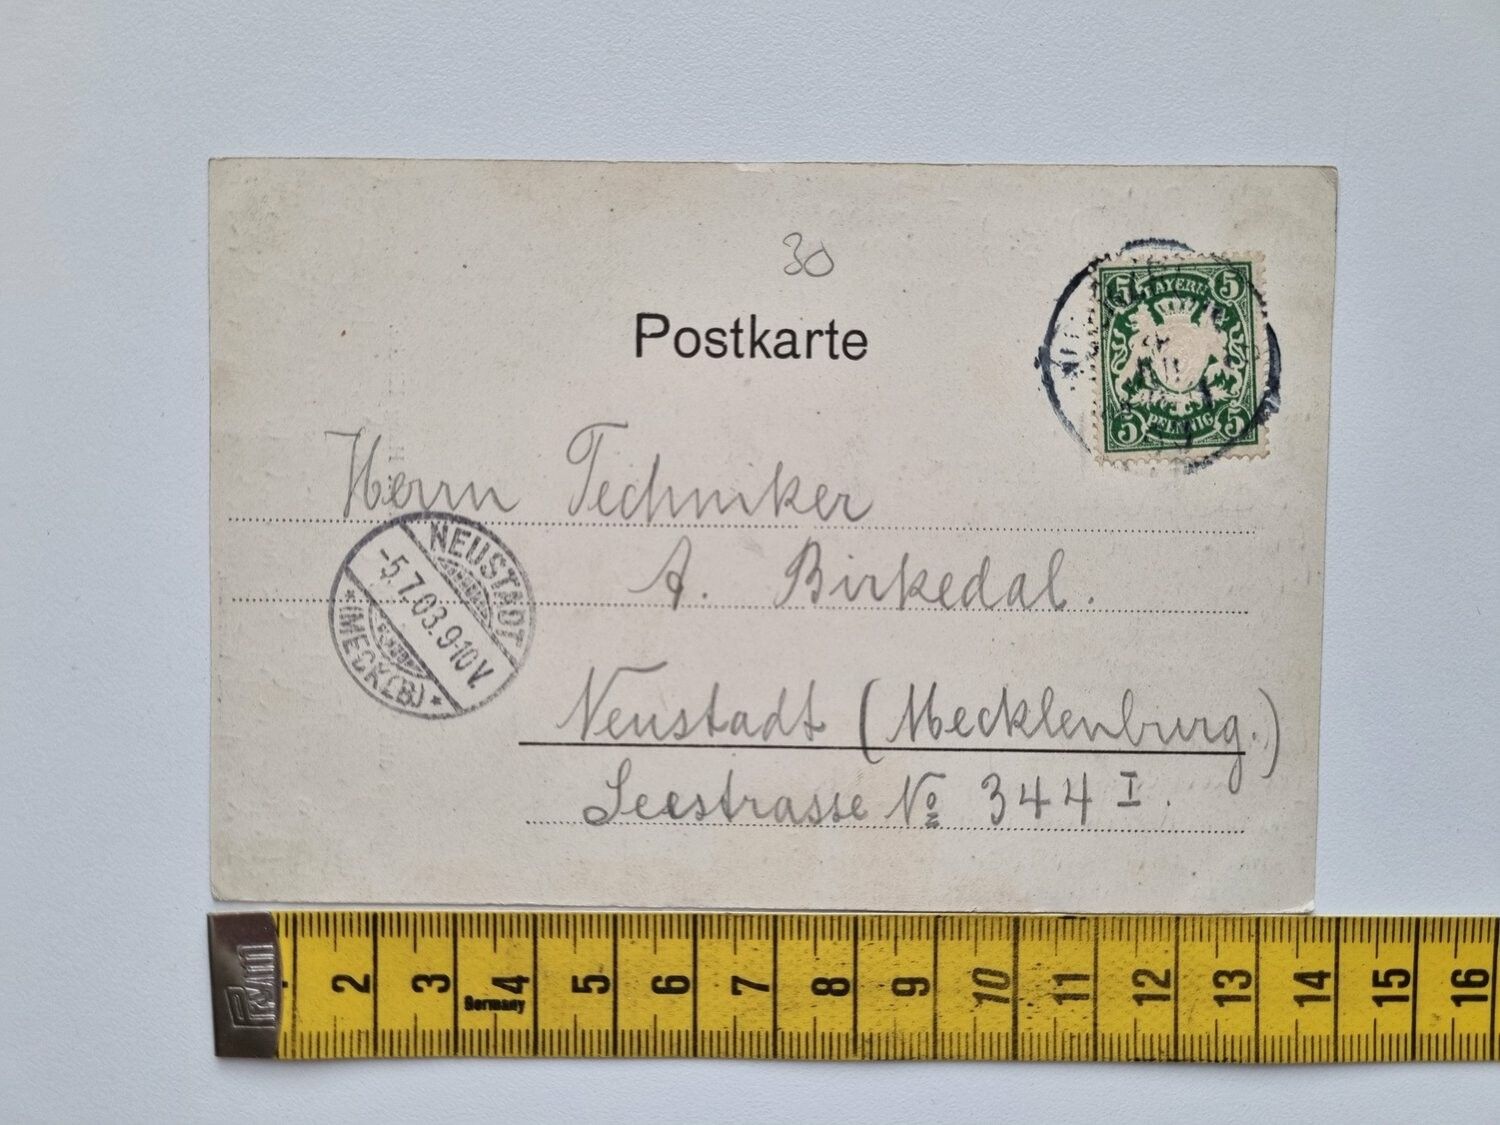 30
Postkarte
5 BAYERN 5
5 PFENNIG 5
Herrn Techniker
A. Birkedal.
NEUSTADT
-5.7.03.9-10V.
*(MECKLB)*
Neustadt (Mecklenburg.)
Seestrasse № 344 I.
2 3 4 5 6 7 8 9 10 11 12 13 14 15 16
Germany